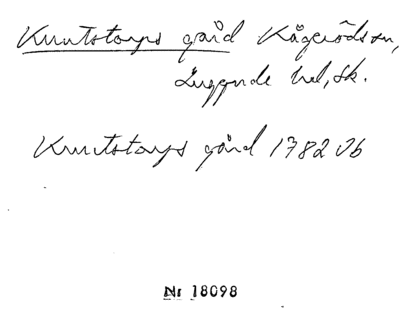 Knutstorps gård Kågeröds sn,
Luggude hd, Sk.
Knutstorps gård 1782 Ob
Nr 18098